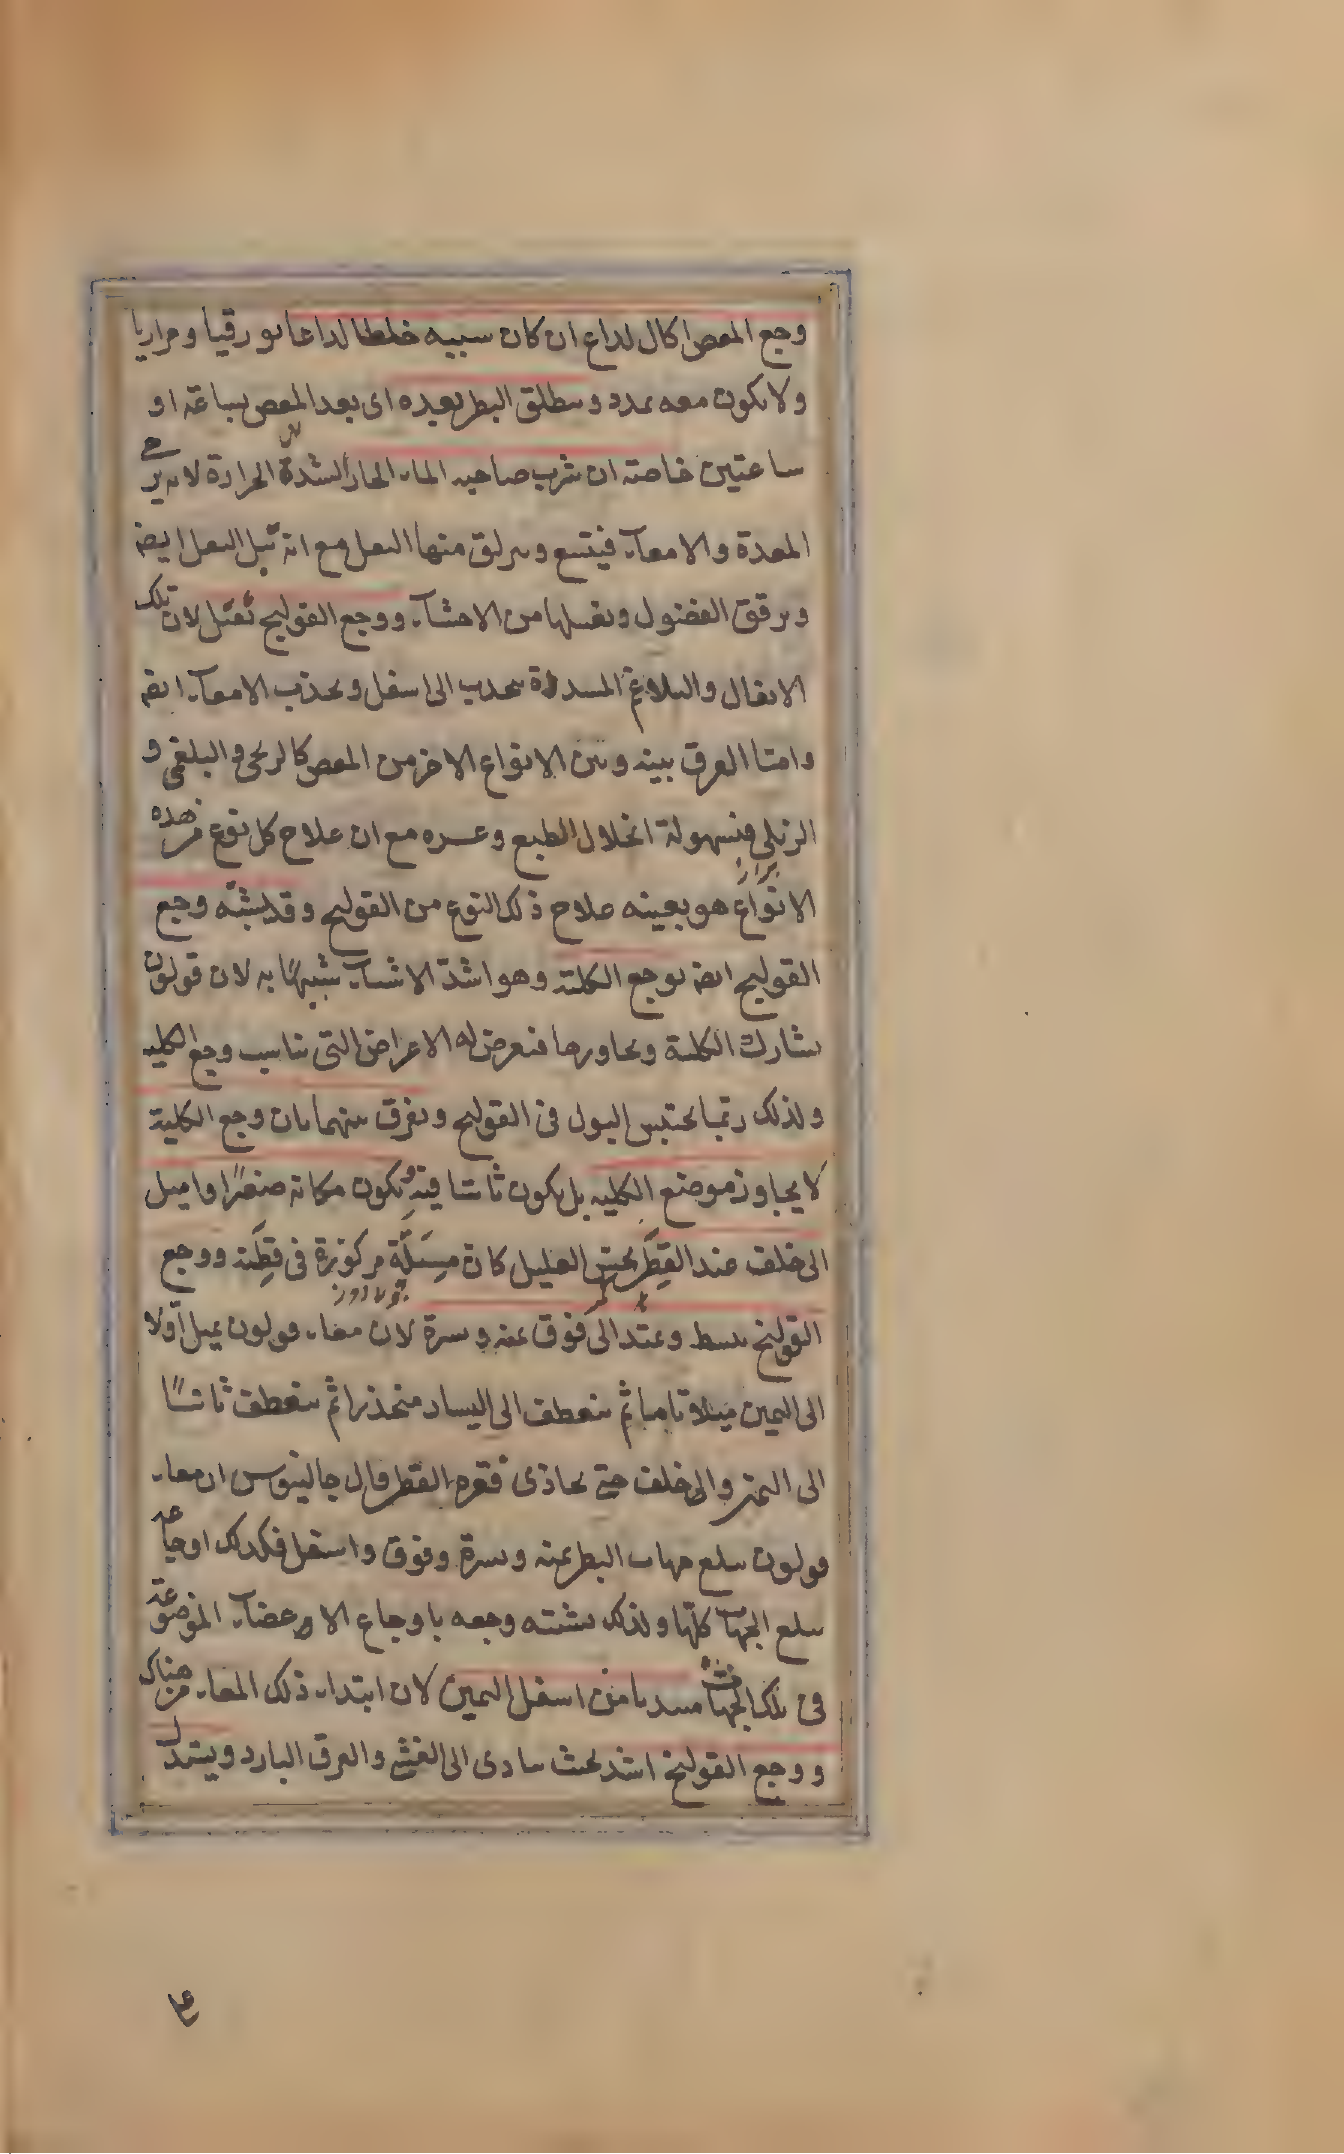 وجع المعص اكال لداع ان كان سببه خلطا لداعا بورقيا ومراريا
ولا يكون معه تمدد وينطلق البطن بعده اى بعد المعص بساعة او
ساعتين خاصة ان شرب صاحبه الماء الحار الشدة الحرارة لانه يرخى
المعدة والامعآء فيتسع ويزلق منها الثفل مع انه يبل الثفل ايضه
ويرقق الفضول ويغسلها من الاحشآء ووجع القولنج ثقيل لان تلك
الاثفال والبلاغم المسددة تنجذب الى اسفل وتجذب الامعآء ايضه
وامّا الفرق بينه وبين الانواع الاخر من المعص كالريحى والبلغمى و
الزبلى فبسهولة انحلال الطبع وعسره مع ان علاج كل نوع من هذه
الانواع هو بعينه علاج ذلك النوع من القولنج وقد يشبّه وجع
القولنج ايضه بوجع الكلية وهو اشدّ الاشيآء شبهًا به لان قولون
يشارك الكلية ويجاورها فيعرض له الاعراض التى يناسب وجع الكليه
ولذلك ربّما يحتبس البول فى القولنج ويفرق بينهما بان وجع الكلية
لا يجاوز موضع الكليه بل يكون ثابتا فيه ويكون مكانه صغيرًا واميل
الى خلف عند القطن يحسّ العليل كان مِسَلّة مركوزة فى قطنه ووجع
القولنج ينبسط ويمتد الى فوق يمنه ويسرة لان معاء قولون يميل اولا
الى اليمين ميلا تاما ثم ينعطف الى اليسار منحدرا ثم ينعطف ثانيًا
الى اليمين والى خلف حتى يحاذى فقرة القطن قال جالينوس ان معاء
قولون يبلغ جهات البطن يمنه ويسرة وفوق واسفل فكذلك اوجاعه
يبلغ الجهات كلّها ولذلك يشبه وجعه باوجاع الاعضآء الموضوعة
فى تلك الجهات مبتديا من اسفل اليمين لان ابتداء ذلك المعاء من هناك
ووجع القولنج اشد بحيث يتادى الى الغشى والعرق البارد ويستدل